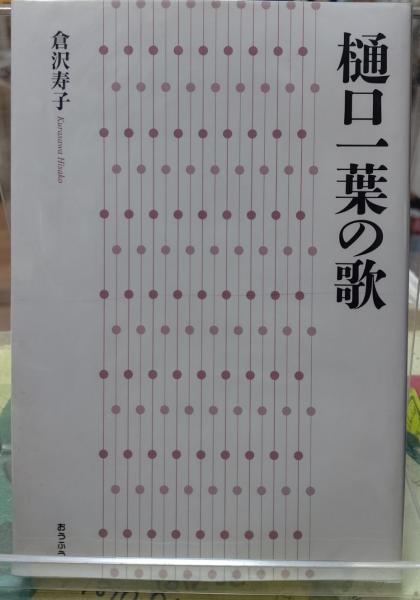 樋口一葉の歌
倉沢寿子
Kurasawa Hisako
おうふう